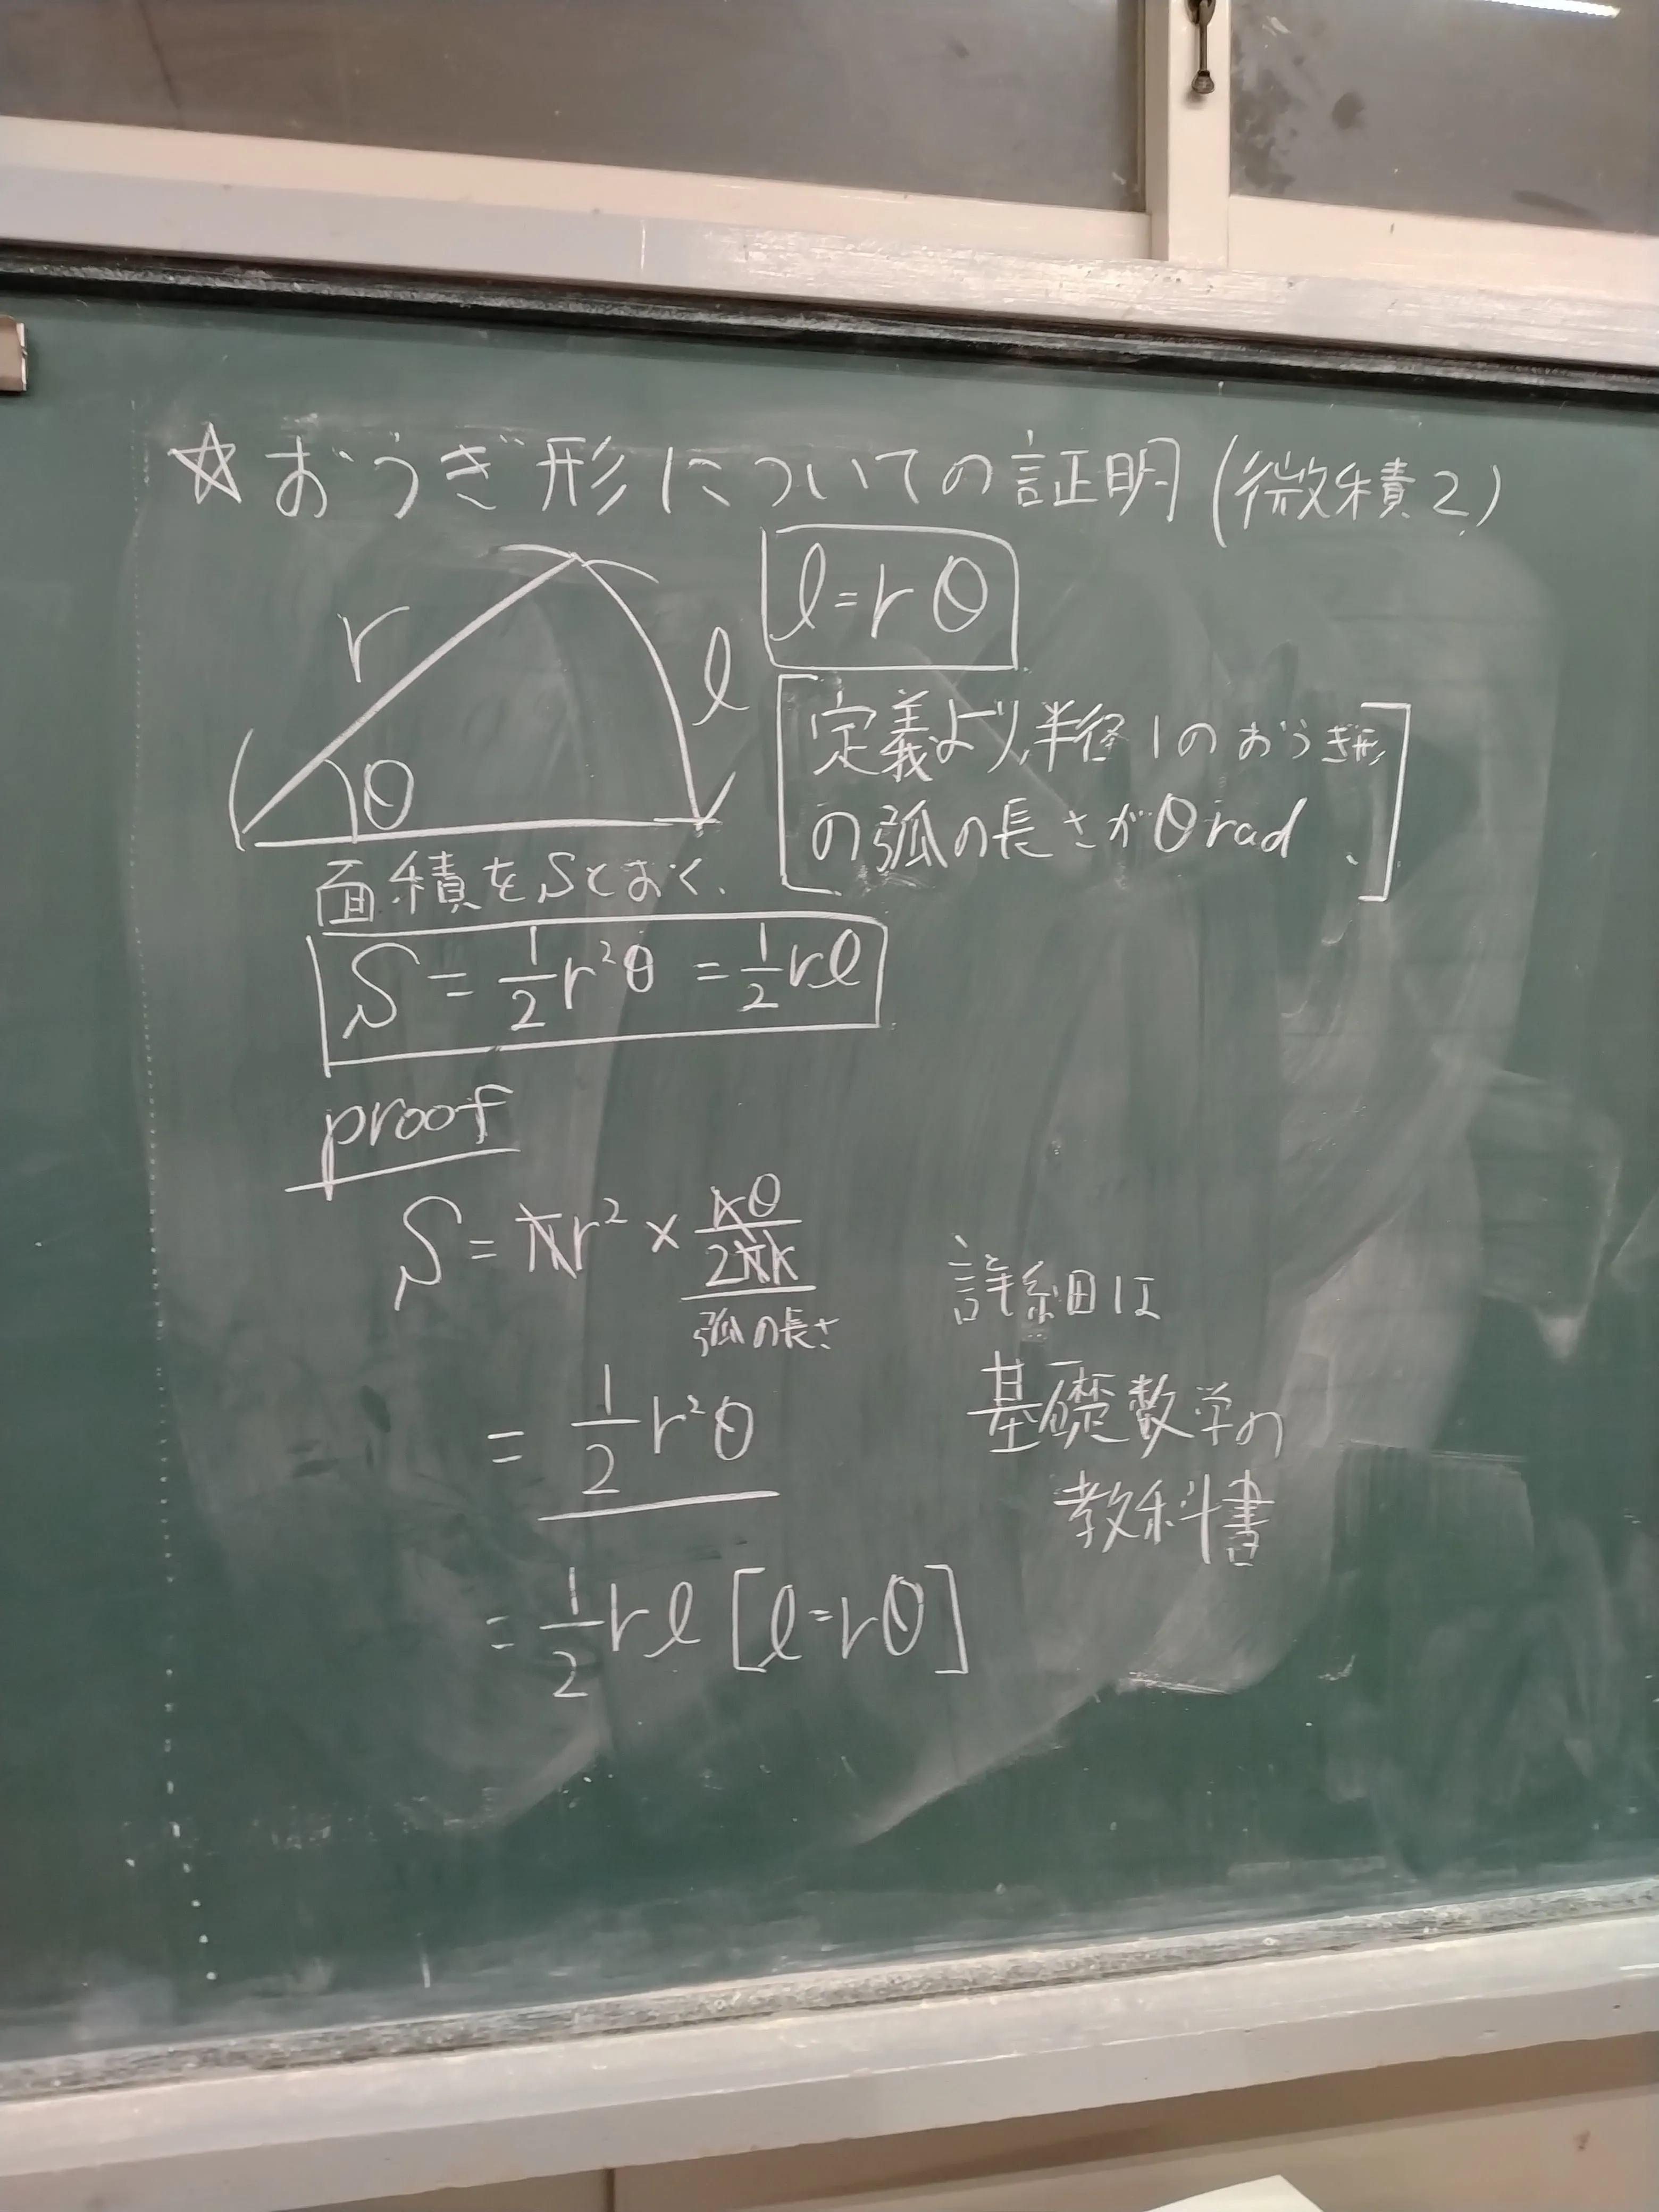 ☆おうぎ形についての証明(微積2)
r
l
θ
l=rθ
[定義より,半径1のおうぎ形
の弧の長さがθrad.]
面積をSとおく.
S = 1/2 r²θ = 1/2 rl
proof
S = πr² × rθ/2πr
弧の長さ
= 1/2 r²θ
= 1/2 rl [l=rθ]
詳細は
基礎数学の
教科書